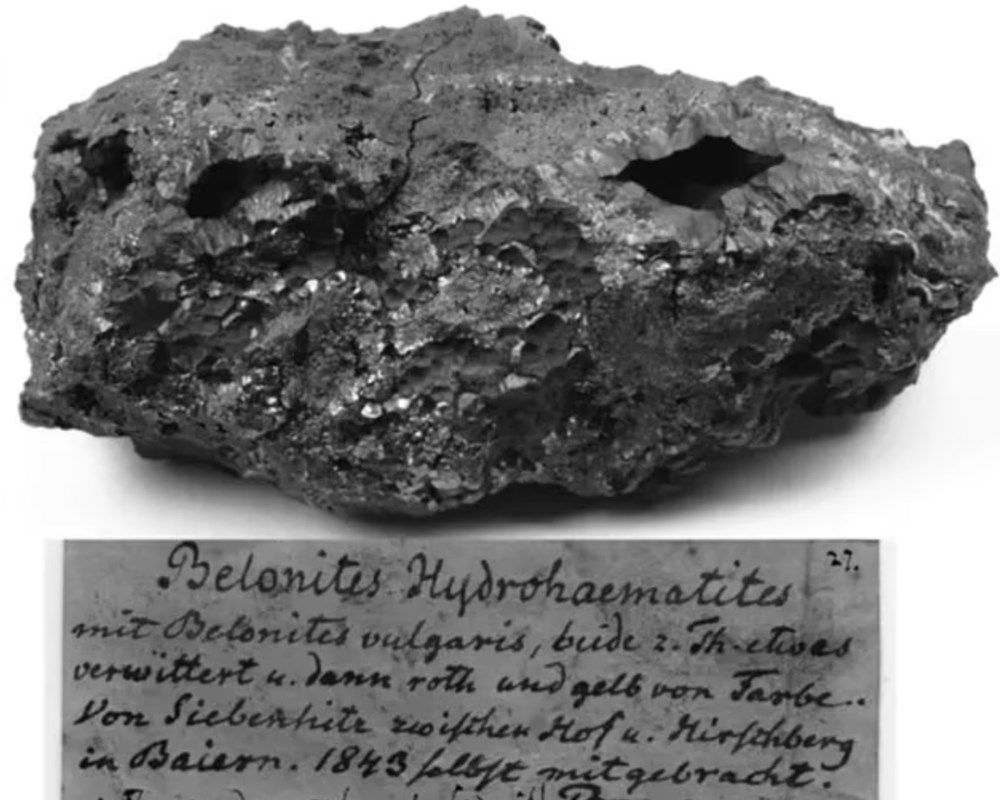 27.
Belonites Hydrohaematites
mit Belonites vulgaris, beide z. Th. etwas
verwittert u. dann roth und gelb von Farbe.
Von Siebenhitz zwischen Hof u. Hirschberg
in Baiern. 1843 selbst mitgebracht.